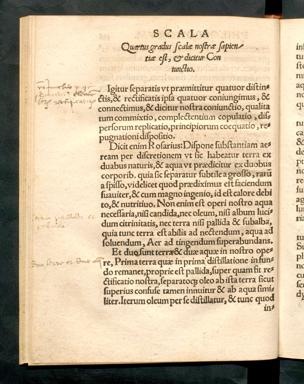 SCALA
Quartus gradus scalæ nostræ sapien-
tiæ est, & dicitur Con
iunctio.
Igitur separatis vt præmittitur quatuor distin-
ctis, & rectificatis ipsa quatuor coniungimus, &
connectimus, & dicitur nostra coniunctio, qualita
tum commixtio, complectentium copulatio, dis
persorum replicatio, principiorum coequatio, re-
pugnantioni dispositio.
Dicit enim Rosarius: Dispone substantiam ae-
ream per discretionem vt sic habeatur terra ex
duabus naturis, & aqua vt prædicitur ex duobus
corporib. quia sic separatur subtile a grosso, rarũ
a spisso, videlicet quod prædiximus est faciendum
suauiter, & cum magno ingenio, id est calore debi
to, & nutritiuo. Non enim est operi nostro aqua
necessaria, nisi candida, nec oleum, nisi album luci
dum citrinitatis, nec terra nisi pallida & subalba,
quia tunc terra est abilis ad nectendum, aqua ad
soluendum, Aer ad tingendum superabundans.
Et duę sunt terræ & duæ aquæ in nostro ope-
re, Prima terra quæ in prima distillatione in fun-
do remanet, proprie est pallida, super quam fit re-
ctificatio nostra, separatoq; oleo ab ista terra sicut
superius confuse tamen innuitur & ab aqua simi
liter. Iterum oleum per se distillatur, & tunc quod
in-